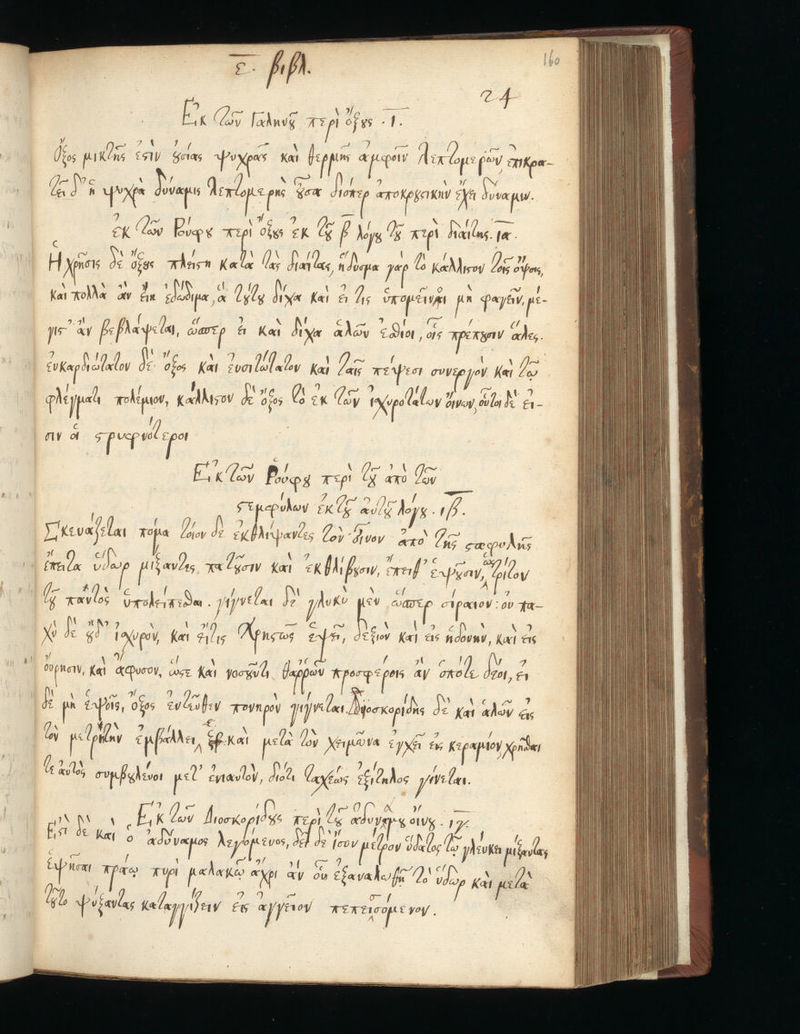 ε. βιβλ.
160
24
Ἐκ τῶν Γαληνοῦ περὶ ὄξους. ι.
Ὄξος μικτῆς ἐστὶν οὐσίας ψυχρᾶς καὶ θερμῆς ἀμφοῖν λεπτομερῶν, ἐπικρα-
τεῖ δ' ἡ ψυχρὰ δύναμις λεπτομερὴς οὖσα διόπερ ἀποκρουστικὴν ἔχει δύναμιν.
ἐκ τῶν Ρούφου περὶ ὄξους ἐκ τοῦ β λόγου τοῦ περὶ διαίτης. ια.
Ἡ χρῆσις δὲ ὄξους πλείστη κατὰ τὰς διαίτας, ἥδυσμα γὰρ τὸ κάλλιστον τοῖς ὄψοις,
καὶ πολλὰ ἂν εἴη ἐδώδιμα, ἃ τούτου δίχα καὶ εἴ τις ὑπομείναι μὴ φαγεῖν, μέ-
γιστ' ἂν βεβλάψεται, ὥσπερ εἰ καὶ δίχα ἁλῶν ἐσθίοι, οἷς πρέπουσιν ἅλες.
ἐυκαρδιώτατον δὲ ὄξος καὶ ἐυσιτώτατον καὶ ταῖς πέψεσι συνεργὸν καὶ τῷ
φλέγματι πολέμιον, κάλλιστον δὲ ὄξος τὸ ἐκ τῶν ἰσχυροτάτων οἴνων, οὗτοι δὲ εἰ-
σιν οἱ στρυφνότεροι
Ἐκ τῶν Ρούφου περὶ τοῦ ἀπὸ τῶν
στεμφύλων ἐκ τοῦ αὐτοῦ λόγου. ιβ.
Σκευάζεται πόμα τοιόν δε ἐκθλίψαντες τὸν οἶνον ἀπὸ τῆς σταφυλῆς
ἔπειτα ὕδωρ μίξαντες πατοῦσιν καὶ ἐκθλίβουσιν, ἔπειθ' ἑψοῦσιν, ὡς τρίτον
τοῦ παντὸς ὑπολείπεσθαι. γίγνεται δὲ γλυκὺ μὲν ὥσπερ σίραιον: οὐ πα-
χὺ δὲ οὐδ' ἰσχυρὸν, καὶ εἴ τις χρηστῶς ἑψεῖ, δεξιὸν καὶ εἰς ἡδονὴν, καὶ εἰς
οὔρησιν, καὶ ἄφυσον, ὥστε καὶ νοσοῦντι θαῤῥῶν προσφέροις ἂν ὁπότε δέοι, εἰ
δὲ μὴ ἑψοῖς, ὄξος ἐντεῦθεν πονηρὸν γίγνεται. Διοσκορίδης δὲ καὶ ἁλῶν εἰς
τὸν μετρητὴν ἐμβάλλει καὶ μετὰ τὸν χειμῶνα ἐγχεῖ εἰς κεράμιον, χρῆσθαι
τε αὐτὸς συμβουλένοι μετ' ἐνιαυτὸν, διότι ταχέως ἐξίτηλος γίνεται.
Ἐκ τῶν Διοσκορίδους περὶ τοῦ ἀδυνάμου οἴνου. ιγ.
Ἐστὶ δὲ καὶ ὁ ἀδύναμος λεγόμενος, δεῖ δὲ ἴσον μέτρον ὕδατος τῷ γλεύκει μίξαντας
ἑψῆσαι πράῳ πυρὶ μαλακῷ ἄχρι ἂν οὗ ἐξαναλωθῇ τὸ ὕδωρ καὶ μετὰ
τοῦτο ψύξαντας καταγγίζειν εἰς ἀγγεῖον πεπεισσόμενον.